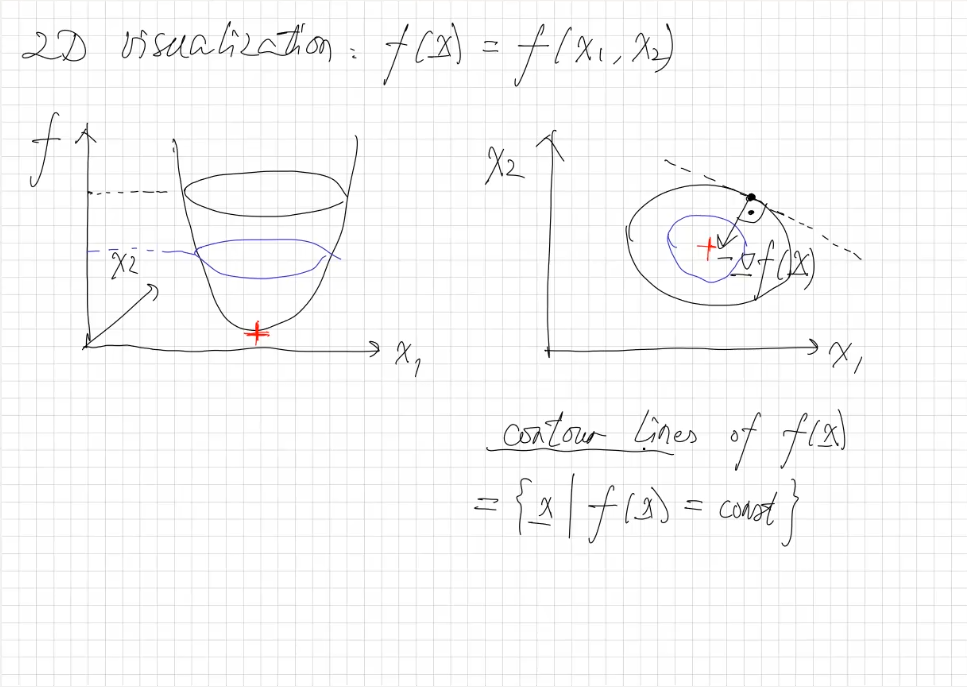 2D visualization: f(x) = f(x₁, x₂)
f
x₂
x₁
x₂
-∇f(x)
x₁
contour lines of f(x)
= {x | f(x) = const}